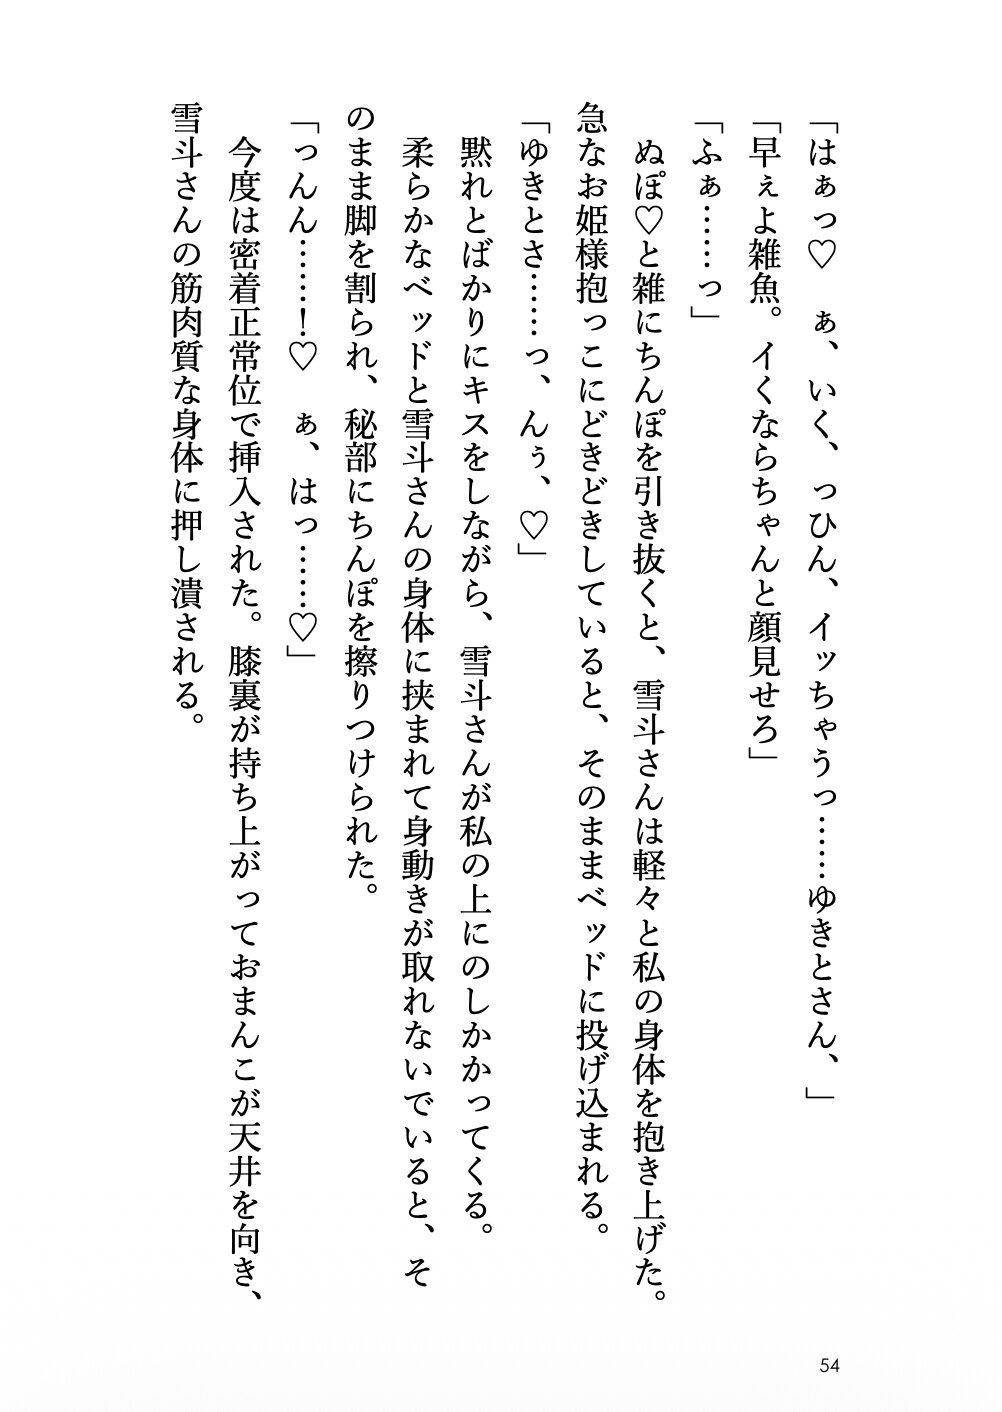 「はぁっ♡　ぁ、いく、っひん、イッちゃうっ……ゆきとさん、」
「早ぇよ雑魚。イくならちゃんと顔見せろ」
「ふぁ……っ」
　ぬぽ♡と雑にちんぽを引き抜くと、雪斗さんは軽々と私の身体を抱き上げた。
急なお姫様抱っこにどきどきしていると、そのままベッドに投げ込まれる。
「ゆきとさ……っ、んぅ、♡」
　黙れとばかりにキスをしながら、雪斗さんが私の上にのしかかってくる。
　柔らかなベッドと雪斗さんの身体に挟まれて身動きが取れないでいると、そ
のまま脚を割られ、秘部にちんぽを擦りつけられた。
「っんん……！♡　ぁ、はっ……♡」
　今度は密着正常位で挿入された。膝裏が持ち上がっておまんこが天井を向き、
雪斗さんの筋肉質な身体に押し潰される。
54